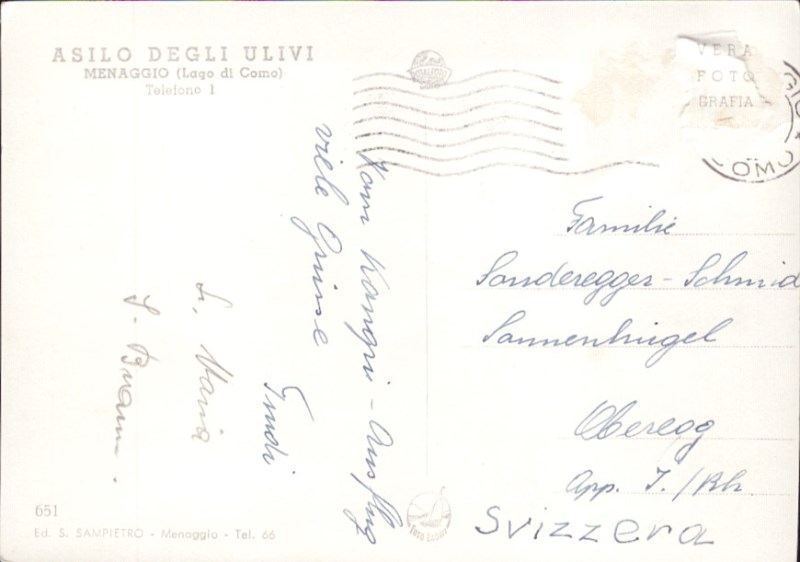 ASILO DEGLI ULIVI
MENAGGIO (Lago di Como)
Telefono 1
VERA
FOTO
GRAFIA
OMO
Vom Kongri - Ausflug
viele Grüsse
Trudi
S. Maria
Familie
Sonderegger - Schmid
Sonnenhügel
Oberegg
App. I./Rh.
Svizzera
651
Ed. S. SAMPIETRO - Menaggio - Tel. 66